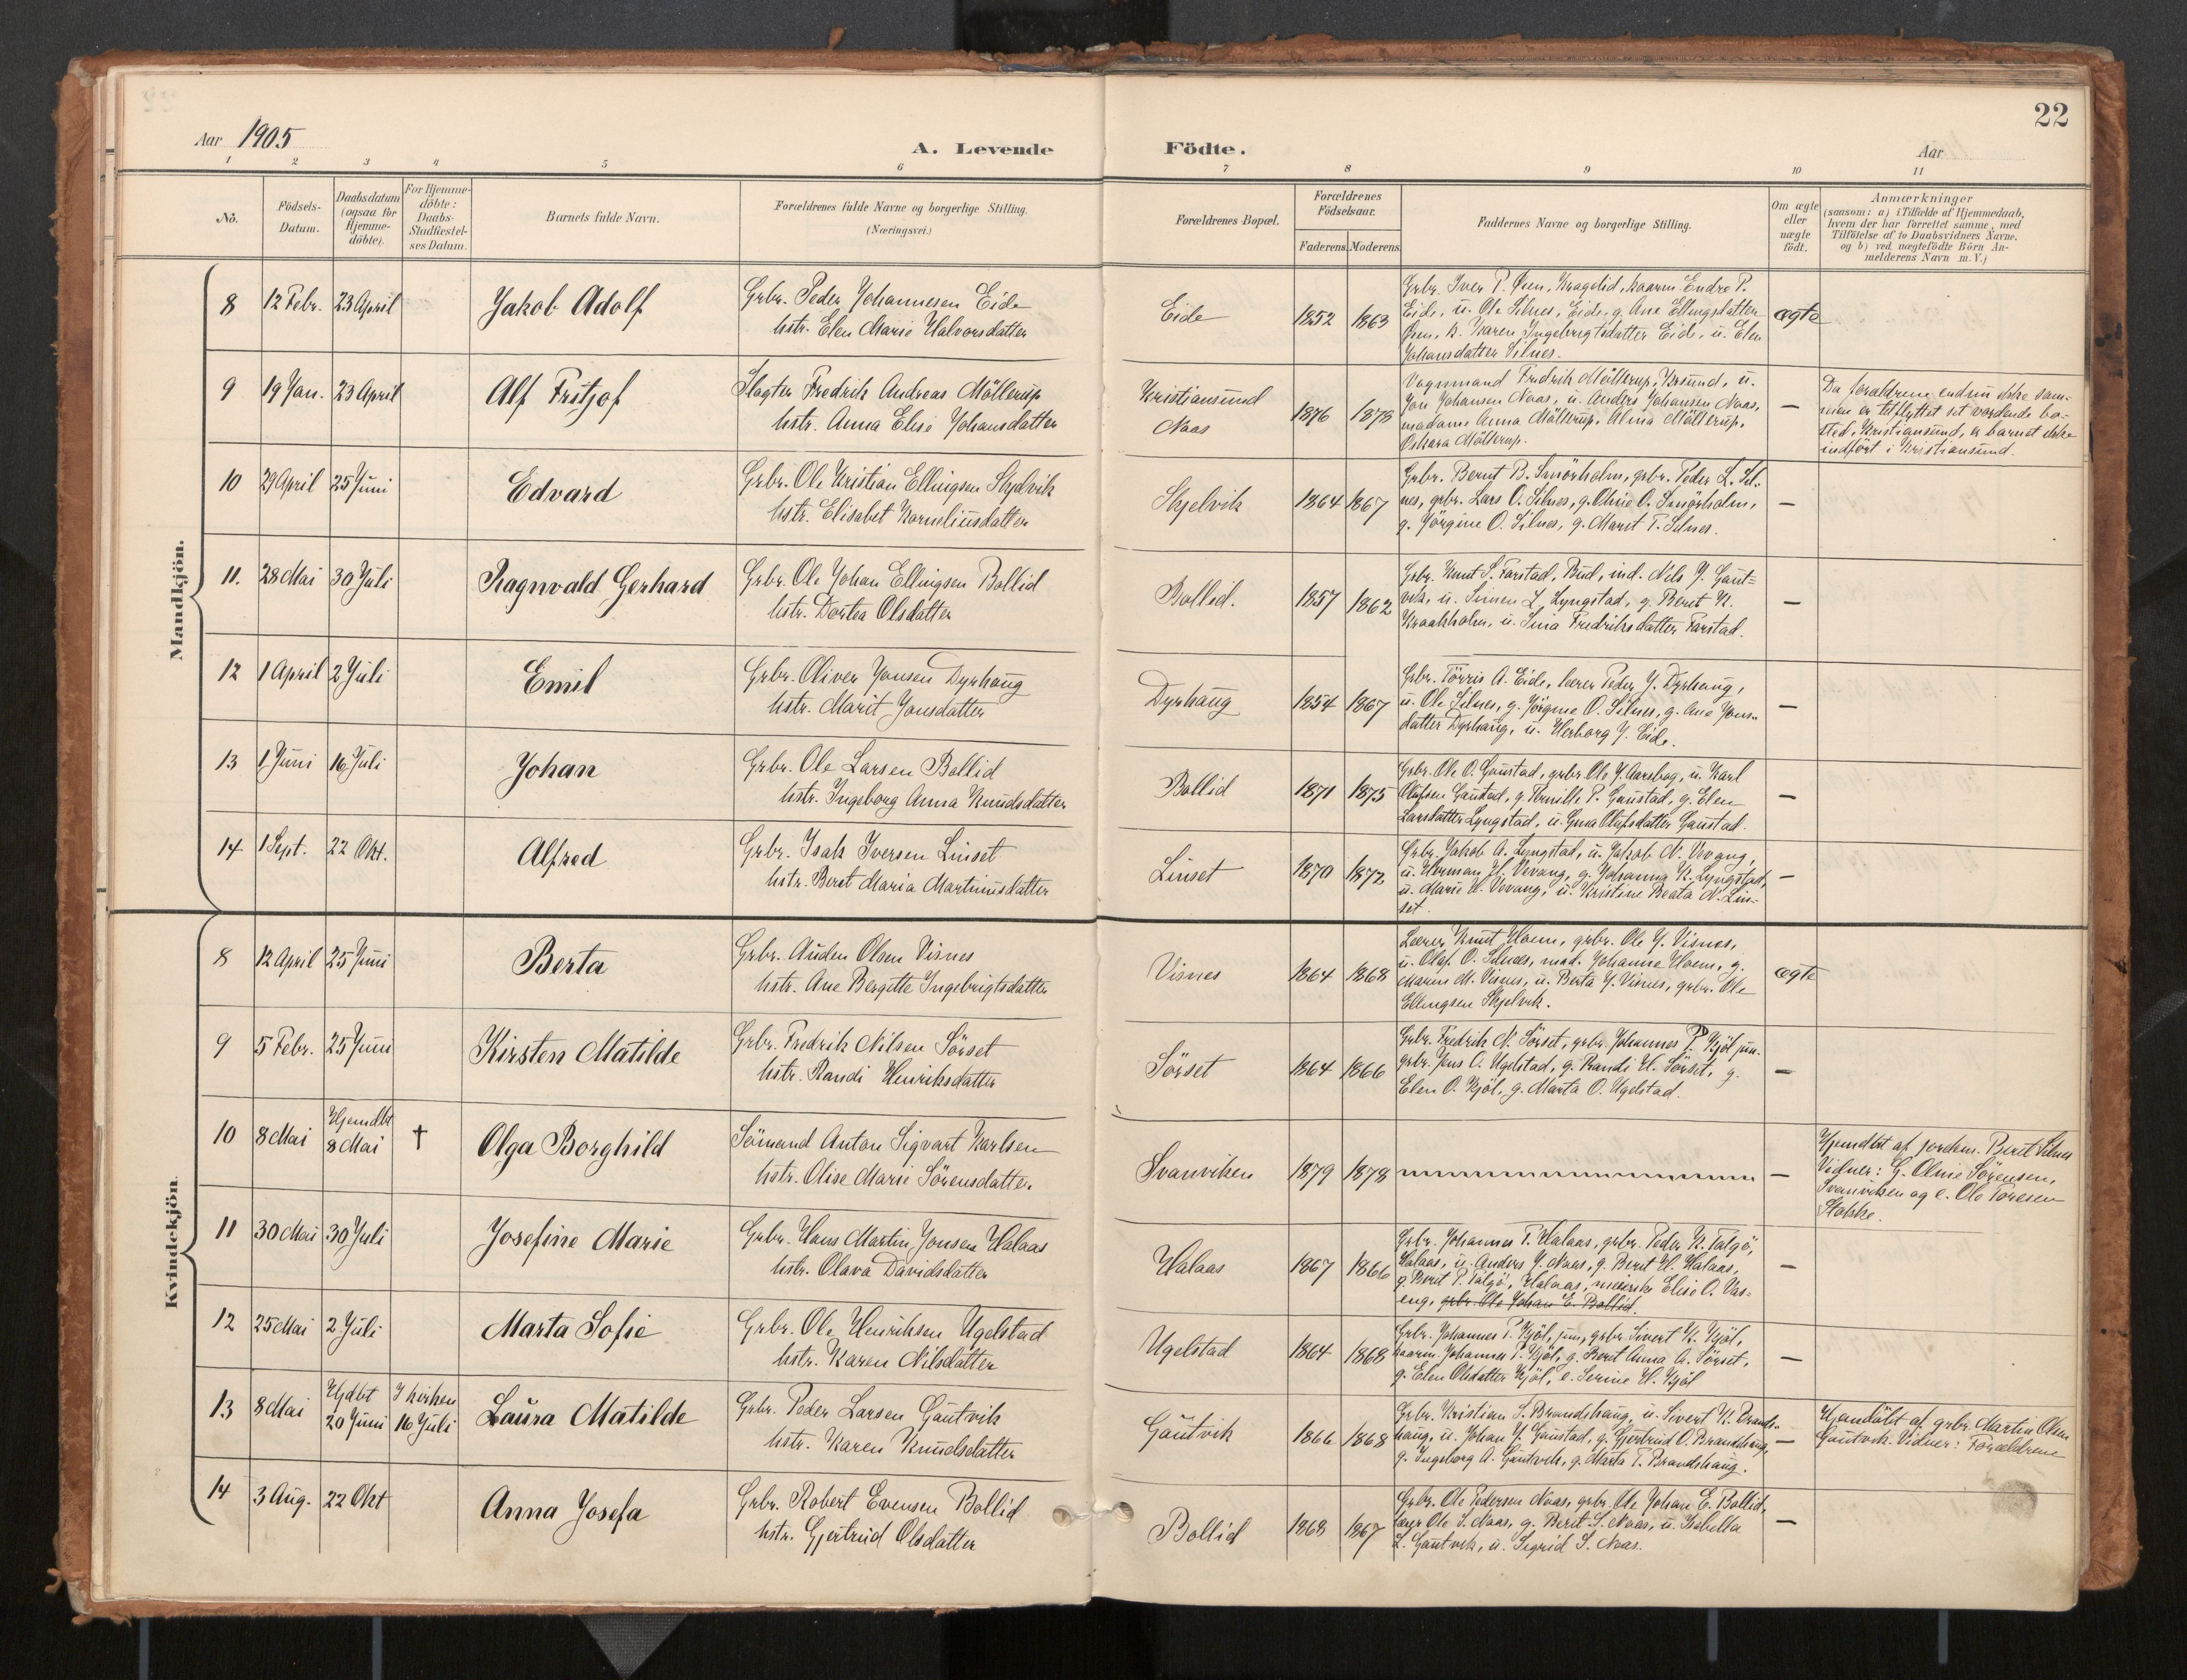 22
Aar 1905
A. Levende Födte.
Aar
1 2 3 4 5 6 7 8 9 10 11
No.
Födsels-
Datum.
Daabsdatum
(ogsaa for
Hjemme-
döbte).
For Hjemme-
döbte:
Daabs-
Stadfæstel-
ses Datum.
Barnets fulde Navn.
Forældrenes fulde Navne og borgerlige Stilling.
(Næringsvei.)
Forældrenes Bopæl.
Forældrenes
Födselsaar.
Faderens. Moderens.
Faddernes Navne og borgerlige Stilling.
Om ægte
eller
uægte
födt.
Anmærkninger
(saasom: a) i Tilfælde af Hjemmedaab,
hvem der har forrettet samme, med
Tilföielse af to Daabsvidners Navne,
og b) ved uægtefödte Börn An-
melderens Navn m. V.)
Mandkjön.
8 12 Febr. 23 April Jakob Adolf
Grbr. Peder Johannesen Eide
hstr. Elen Marie Halvorsdatter
Eide 1852 1863
Grbr. Iver P. Öien, Kragelid, kaarm. Endre P.
Eide, u. Ole Silnes, Eide, g. Ane Ellingsdatter
Öien, k. Karen Ingebrigtsdatter Eide, u. Elen
Johansdatter Silnes.
ægte
9 19 Jan. 23 April Alf Fritjof
Slagter Fredrik Andreas Möllerup
hstr. Anna Elise Johansdatter
Kristiansund
Naas
1876 1878
Vognmand Fredrik Möllerup, Krsund, u.
Jon Johansen Naas, u. Anders Johansen Naas,
madame Anna Möllerup, Alma Möllerup,
Oskara Möllerup.
—
Da forældrene endnu ikke sam-
men er tilflyttet sit vordende bo-
sted, Kristiansund, er barnet ikke
indfört i Kristiansund.
10 29 April 25 Juni Edvard
Grbr. Ole Kristian Ellingsen Skjelvik
hstr. Elisabet Korneliusdatter
Skjelvik 1864 1867
Grbr. Bernt B. Smörholm, grbr. Peder L. Sil-
nes, grbr. Lars O. Silnes, g. Oline O. Smörholm,
g. Jörgine O. Silnes, g. Marit T. Silnes.
—
11. 28 Mai 30 Juli Ragnvald Gerhard
Grbr. Ole Johan Ellingsen Bollid
hstr. Dortea Olsdatter
Bollid. 1857 1862
Grbr. Knut S. Farstad, Bud, ind. Nils J. Gaut-
vik, u. Simen L. Lyngstad, g. Berit K.
Kraakholm, u. Sina Fredriksdatter Farstad.
—
12 1 April 2 Juli Emil
Grbr. Oliver Jonsen Dyrhaug
hstr. Marit Jonsdatter
Dyrhaug 1854 1867
Grbr. Törris A. Eide, lærer Peder J. Dyrhaug,
u. Ole Silnes, g. Jörgine O. Silnes, g. Ane Jons-
datter Dyrhaug, u. Herborg J. Eide.
—
13 1 Juni 16 Juli Johan
Grbr. Ole Larsen Bollid
hstr. Ingeborg Anna Knudsdatter
Bollid 1871 1875
Grbr. Ole O. Gaustad, grbr. Ole J. Aarsbog, u. Karl
Olufsen Gaustad, g. Pernille P. Gaustad, g. Elen
Larsdatter Lyngstad, u. Gina Olufsdatter Gaustad.
—
14 1 Sept. 22 Okt. Alfred
Grbr. Isak Iversen Linset
hstr. Berit Maria Martinusdatter
Linset 1870 1872
Grbr. Jakob A. Lyngstad, u. Jakob N. Vevang,
u. Herman H. Vevang, g. Johanna K. Lyngstad,
u. Marie H. Vevang, u. Kristine Beata N. Lin-
set.
—
Kvindekjön.
8 12 April 25 Juni Berta
Grbr. Auden Olsen Visnes
hstr. Ane Bergitte Ingebrigtsdatter
Visnes 1864 1868
Lærer Knut Hoem, grbr. Ole J. Visnes,
u. Olaf O. Silnes, mad. Johanna Hoem, g.
Maren M. Visnes, u. Berta J. Visnes, grbr. Ole
Ellingsen Skjelvik.
ægte
9 5 Febr. 25 Juni Kirsten Matilde
Grbr. Fredrik Nilsen Sörset
hstr. Randi Henriksdatter
Sörset 1864 1866
Grbr. Fredrik N. Sörset, grbr. Johannes P. Kjöl jun.
grbr. Jens O. Ugelstad, g. Randi H. Sörset, g.
Elen O. Kjöl, g. Marta O. Ugelstad.
—
10 8 Mai Hjemdbt 8 Mai † Olga Borghild
Sömand Anton Sigvart Karlsen
hstr. Olise Marie Sörensdatter
Svanviken 1879 1878
—
Hjemdbt af jordem. Berit Silnes
Vidner: G. Oline Sörensen,
Svanviken og e. Ole Toresen
Stokke.
11 30 Mai 30 Juli Josefine Marie
Grbr. Hans Martin Jonsen Halaas
hstr. Olava Davidsdatter
Halaas 1867 1866
Grbr. Johannes T. Halaas, grbr. Peder K. Talgö,
Halaas, u. Anders J. Naas, g. Berit H. Halaas,
g. Berit P. Talgö, Halaas, meierske Elise O. Vas-
eng, grbr. Ole Johan E. Bollid.
—
12 25 Mai 2 Juli Marta Sofie
Grbr. Ole Henriksen Ugelstad
hstr. Karen Nilsdatter
Ugelstad 1864 1868
Grbr. Johannes P. Kjöl, jun, grbr. Sivert K. Kjöl,
kaarm. Johannes P. Kjöl, g. Berit Anna A. Sörset,
g. Elen Olsdatter Kjöl, e. Serine H. Kjöl
—
13 8 Mai Hjdbt 20 Juni I kirken 16 Juli Laura Matilde
Grbr. Peder Larsen Gautvik
hstr. Karen Knudsdatter
Gautvik 1866 1868
Grbr. Kristian S. Brandshaug, u. Sivert K. Brands-
haug, u. Johan J. Gaustad, g. Gjertrud O. Brandshaug,
g. Ingeborg A. Gautvik, g. Marta T. Brandshaug.
—
Hjemdöbt af grbr. Martin Olsen
Gautvik. Vidner: Forældrene
14 3 Aug. 22 Okt Anna Josefa
Grbr. Robert Evensen Bollid
hstr. Gjertrud Olsdatter
Bollid 1868 1867
Grbr. Ole Pedersen Naas, grbr. Ole Johan E. Bollid,
lærer Ole S. Naas, g. Berit S. Naas, u. Isabella
L. Gautvik, u. Sigrid S. Naas.
—